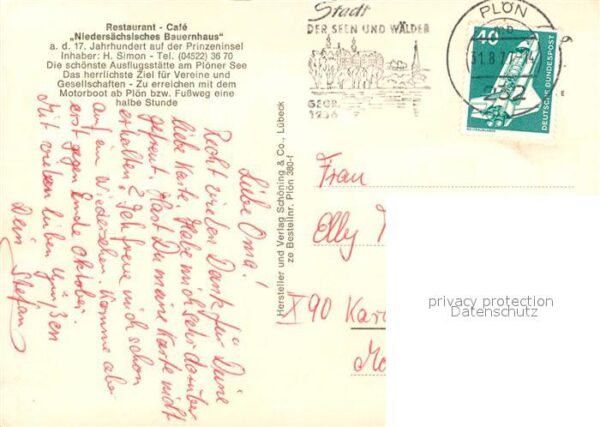 Restaurant - Café
„Niedersächsisches Bauernhaus"
a. d. 17. Jahrhundert auf der Prinzeninsel
Inhaber: H. Simon - Tel. (04522) 36 70
Die schönste Ausflugsstätte am Plöner See
Das herrlichste Ziel für Vereine und
Gesellschaften - Zu erreichen mit dem
Motorboot ab Plön bzw. Fußweg eine
halbe Stunde
Liebe Oma!
Recht vielen Dank für Deine
liebe Karte. Habe mich sehr darüber
gefreut. Hast Du meine Karte nicht
erhalten? Ich freue mich schon
auf ein Wiedersehen. Komme aber
erst gegen Ende Oktober.
Mit vielen lieben Grüßen
Dein Stefan
Hersteller und Verlag Schöning & Co., Lübeck
ze Bestellnr. Plön 380-f
Stadt
DER SEEN UND WÄLDER
GEGR.
1236
PLÖN
40
DEUTSCHE BUNDESPOST
Frau
Elly
X90 Kar
privacy protection
Datenschutz